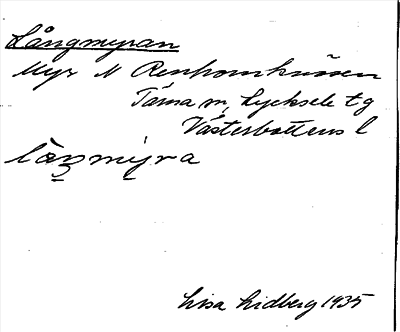 Långmyran
Myr N Renhornhusen
Tärna sn, Lycksele tg
Västerbottens l
låŋmyra
Lisa Lidberg 1935